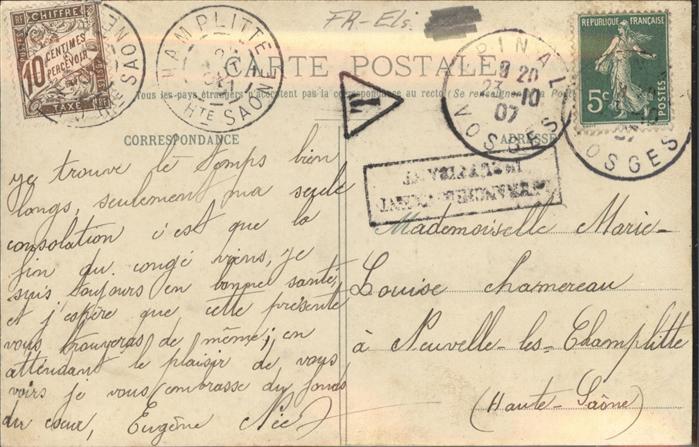 CHIFFRE
10 CENTIMES
A PERCEVOIR
TAXE
CHAMPLITTE
HTE SAONE
FR-Els.
CARTE POSTALE
Tous les pays étrangers n'acceptent pas la correspondance au recto (Se renseigner à la Poste)
T
EPINAL
9 20
27-10
07
VOSGES
REPUBLIQUE FRANÇAISE
5c
POSTES
CORRESPONDANCE
ADRESSE
AFFRANCHISSEMENT
INSUFFISANT
Je trouve le temps bien
longs, seulement ma seule
consolation c'est que la
fin du congé viens, je
suis toujours en bonne santé,
et j'espère que cette présente
vous trouveras de même; en
attendant le plaisir de vous
voirs je vous embrasse du fonds
du coeur, Eugène
Mademoiselle Marie-
Louise charnereau
à Neuvelle-les-Champlitte
(Haute-Saône)